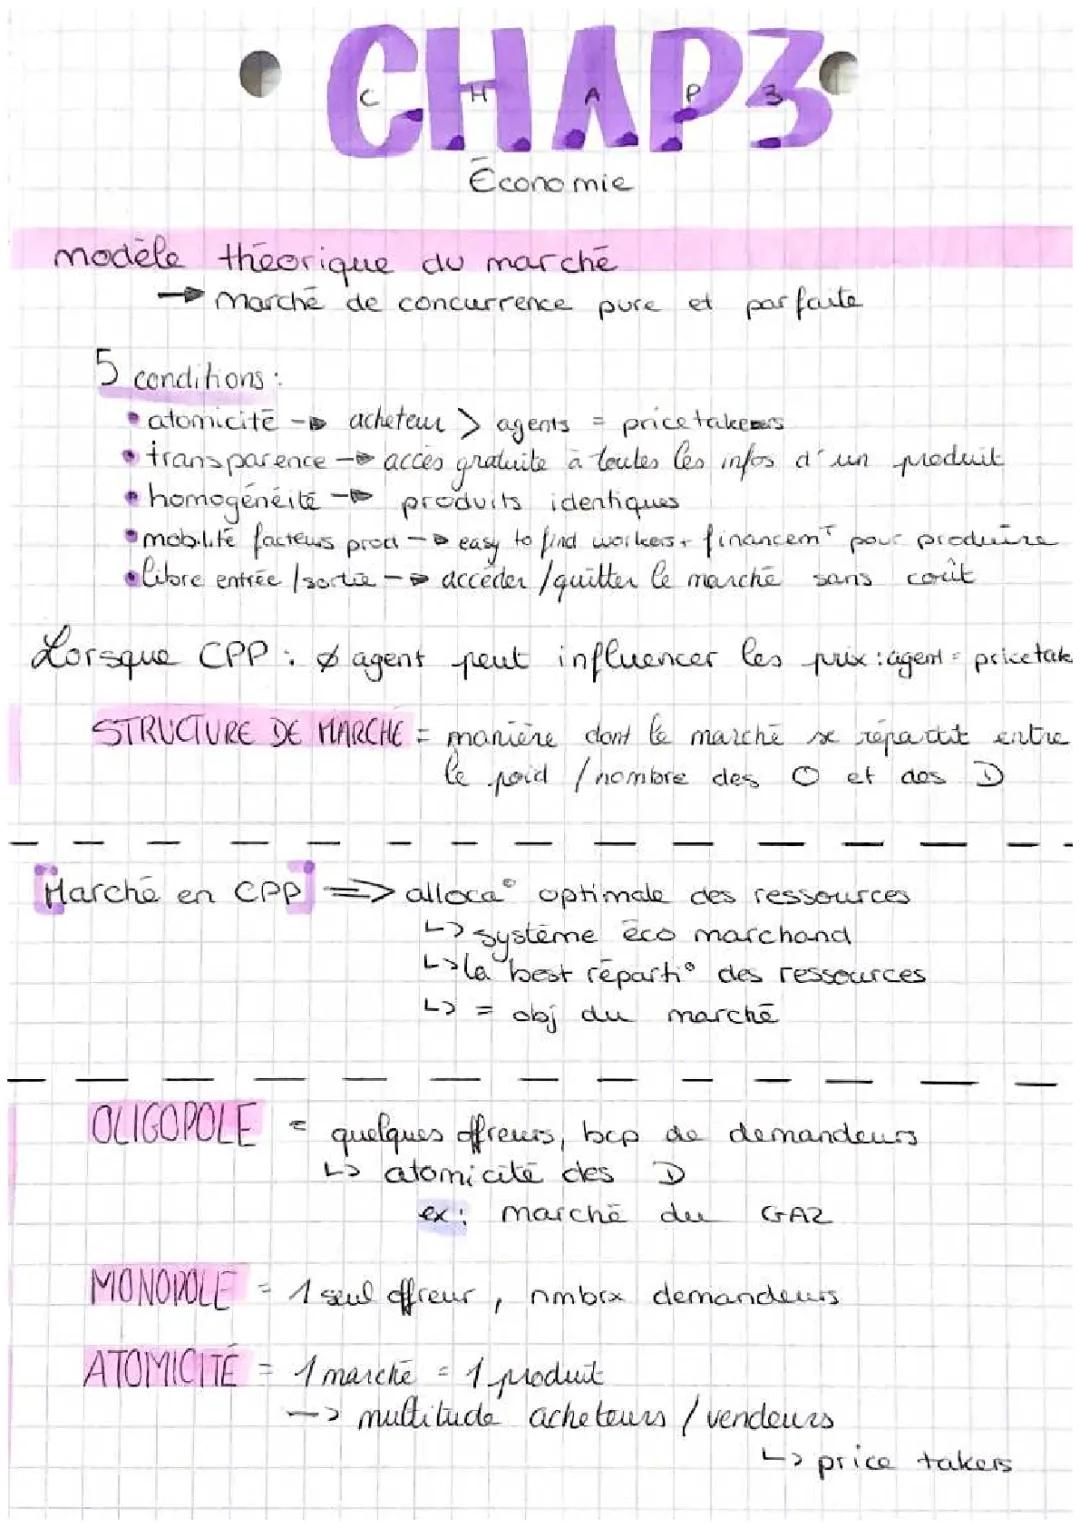 CHAP3
C H A P 3
Économie
modèle théorique du marché
→ Marché de concurrence pure et parfaite
5 conditions :
• atomicité → acheteur > agents = pricetakers
• transparence → accès gratuite à toutes les infos d'un produit
• homogénéité → produits identiques
• mobilité facteurs prod → easy to find workers + financemT pour produire
• libre entrée / sortie → accéder / quitter le marché sans coût
Lorsque CPP : ø agent peut influencer les prix : agent = pricetak
STRUCTURE DE MARCHE = manière dont le marché se répartit entre
le poid / nombre des O et des D
Marché en CPP => alloca° optimale des ressources
↳ système éco marchand
↳ la best réparti° des ressources
↳ = obj du marché
OLIGOPOLE = quelques offreurs, bcp de demandeurs
↳ atomicité des D
ex : marché du GAZ
MONOPOLE = 1 seul offreur, nmbrx demandeurs
ATOMICITÉ = 1 marché = 1 produit
→ multitude acheteurs / vendeurs
↳ price takers